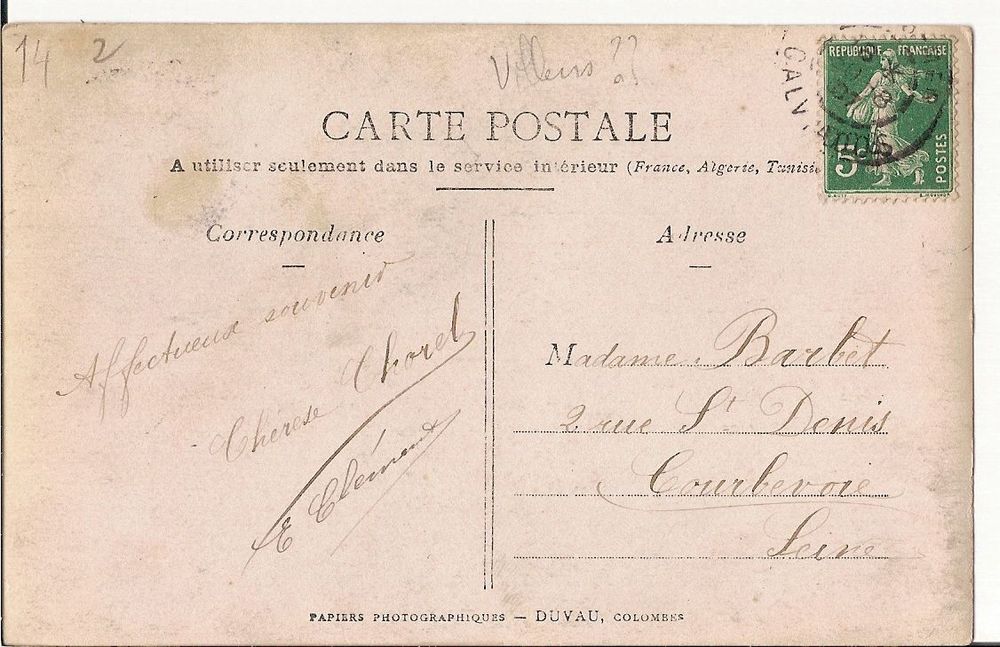 14 2
Villers ??
CARTE POSTALE
A utiliser seulement dans le service intérieur (France, Algerie, Tunisie
REPUBLIQUE FRANÇAISE
5c
POSTES
CALVADOS
Correspondance
Adresse
Affectueux souvenir
Thérèse Chorel
E Clément
Madame Barbet
2 rue St Denis
Courbevoie
Seine
PAPIERS PHOTOGRAPHIQUES — DUVAU, COLOMBES